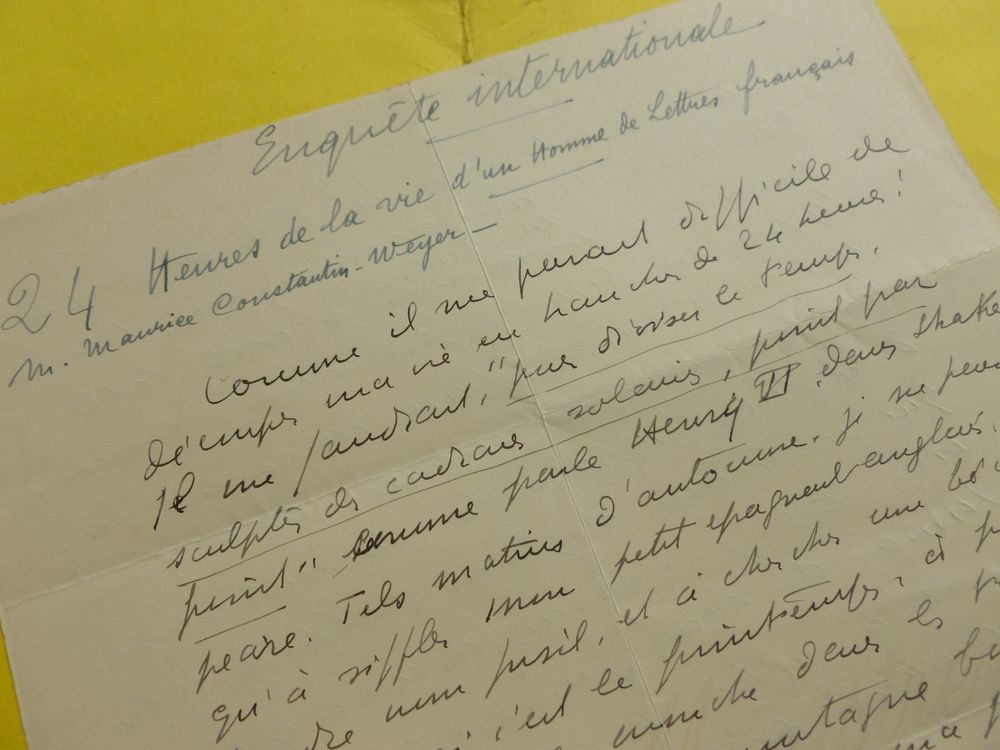 Enquête internationale
24 Heures de la vie d'un Homme de Lettres français
M. Maurice Constantin-Weyer —
Comme il me parait difficile de
découper ma vie en tranches de 24 heures!
Il me faudrait, "pour diviser le temps,
sculpter des cadrans solaires, point par
point" comme parle Henry VI dans Shakes
peare. Tels matins d'automne, je ne peux
qu'à siffler mon petit épagneul anglais,
mon fusil, et à chercher une
c'est le printemps, à
mouche dans les
montagne